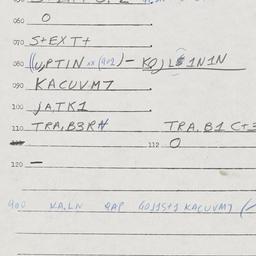 060 O
070 S+EXT+
080 ((U,PTIN xx (401) – KØJLS1N1N
090 KACUVM7
100 JA,TK1
110 TRA,B3RN TRA.B1 C+3
112 O
120 –
400 KA.LN 4AP 60J1S+1 KACUVM7